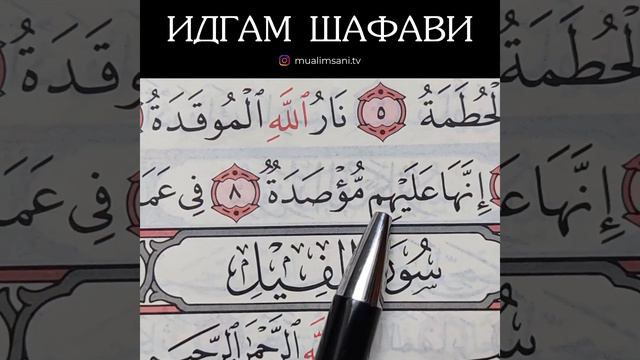 ИДГАМ ШАФАВИ
mualimsani.tv
ٱلْحُطَمَةُ ٥ نَارُ ٱللَّهِ ٱلْمُوقَدَةُ
إِنَّهَا عَلَيْهِم مُّؤْصَدَةٌ ٨ فِى
سُورَةُ ٱلْفِيلِ
ٱلرَّحْمَٰنِ ٱلرَّحِيمِ